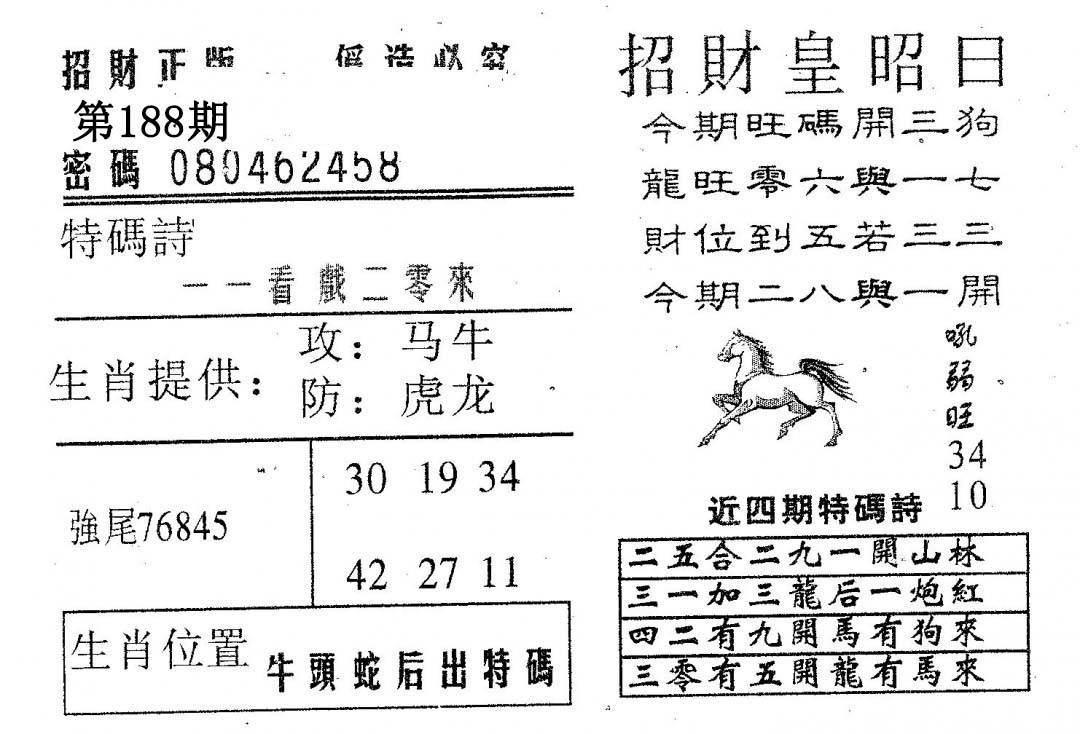 招財正版 偽造必究
第188期
密碼 080462458
特碼詩
一一看戲二零來
生肖提供：
攻：马牛
防：虎龙
強尾76845
30 19 34
42 27 11
生肖位置
牛頭蛇后出特碼
招財皇昭曰
今期旺碼開三狗
龍旺零六與一七
財位到五若三三
今期二八與一開
吼
弱
旺
34
10
近四期特碼詩
二五合二九一開山林
三一加三龍后一炮紅
四二有九開馬有狗來
三零有五開龍有馬來